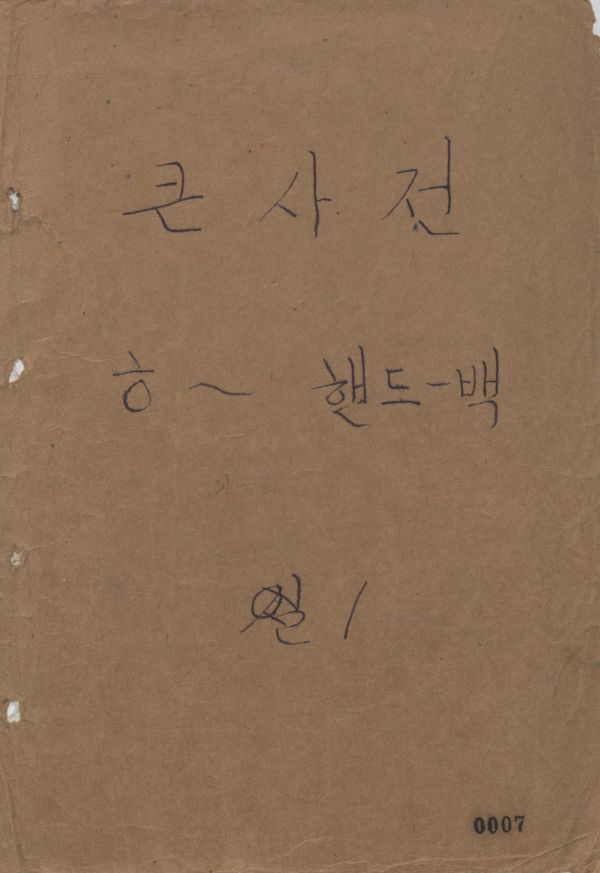 큰 사전
ㅎ ~ 핸드-백
0007